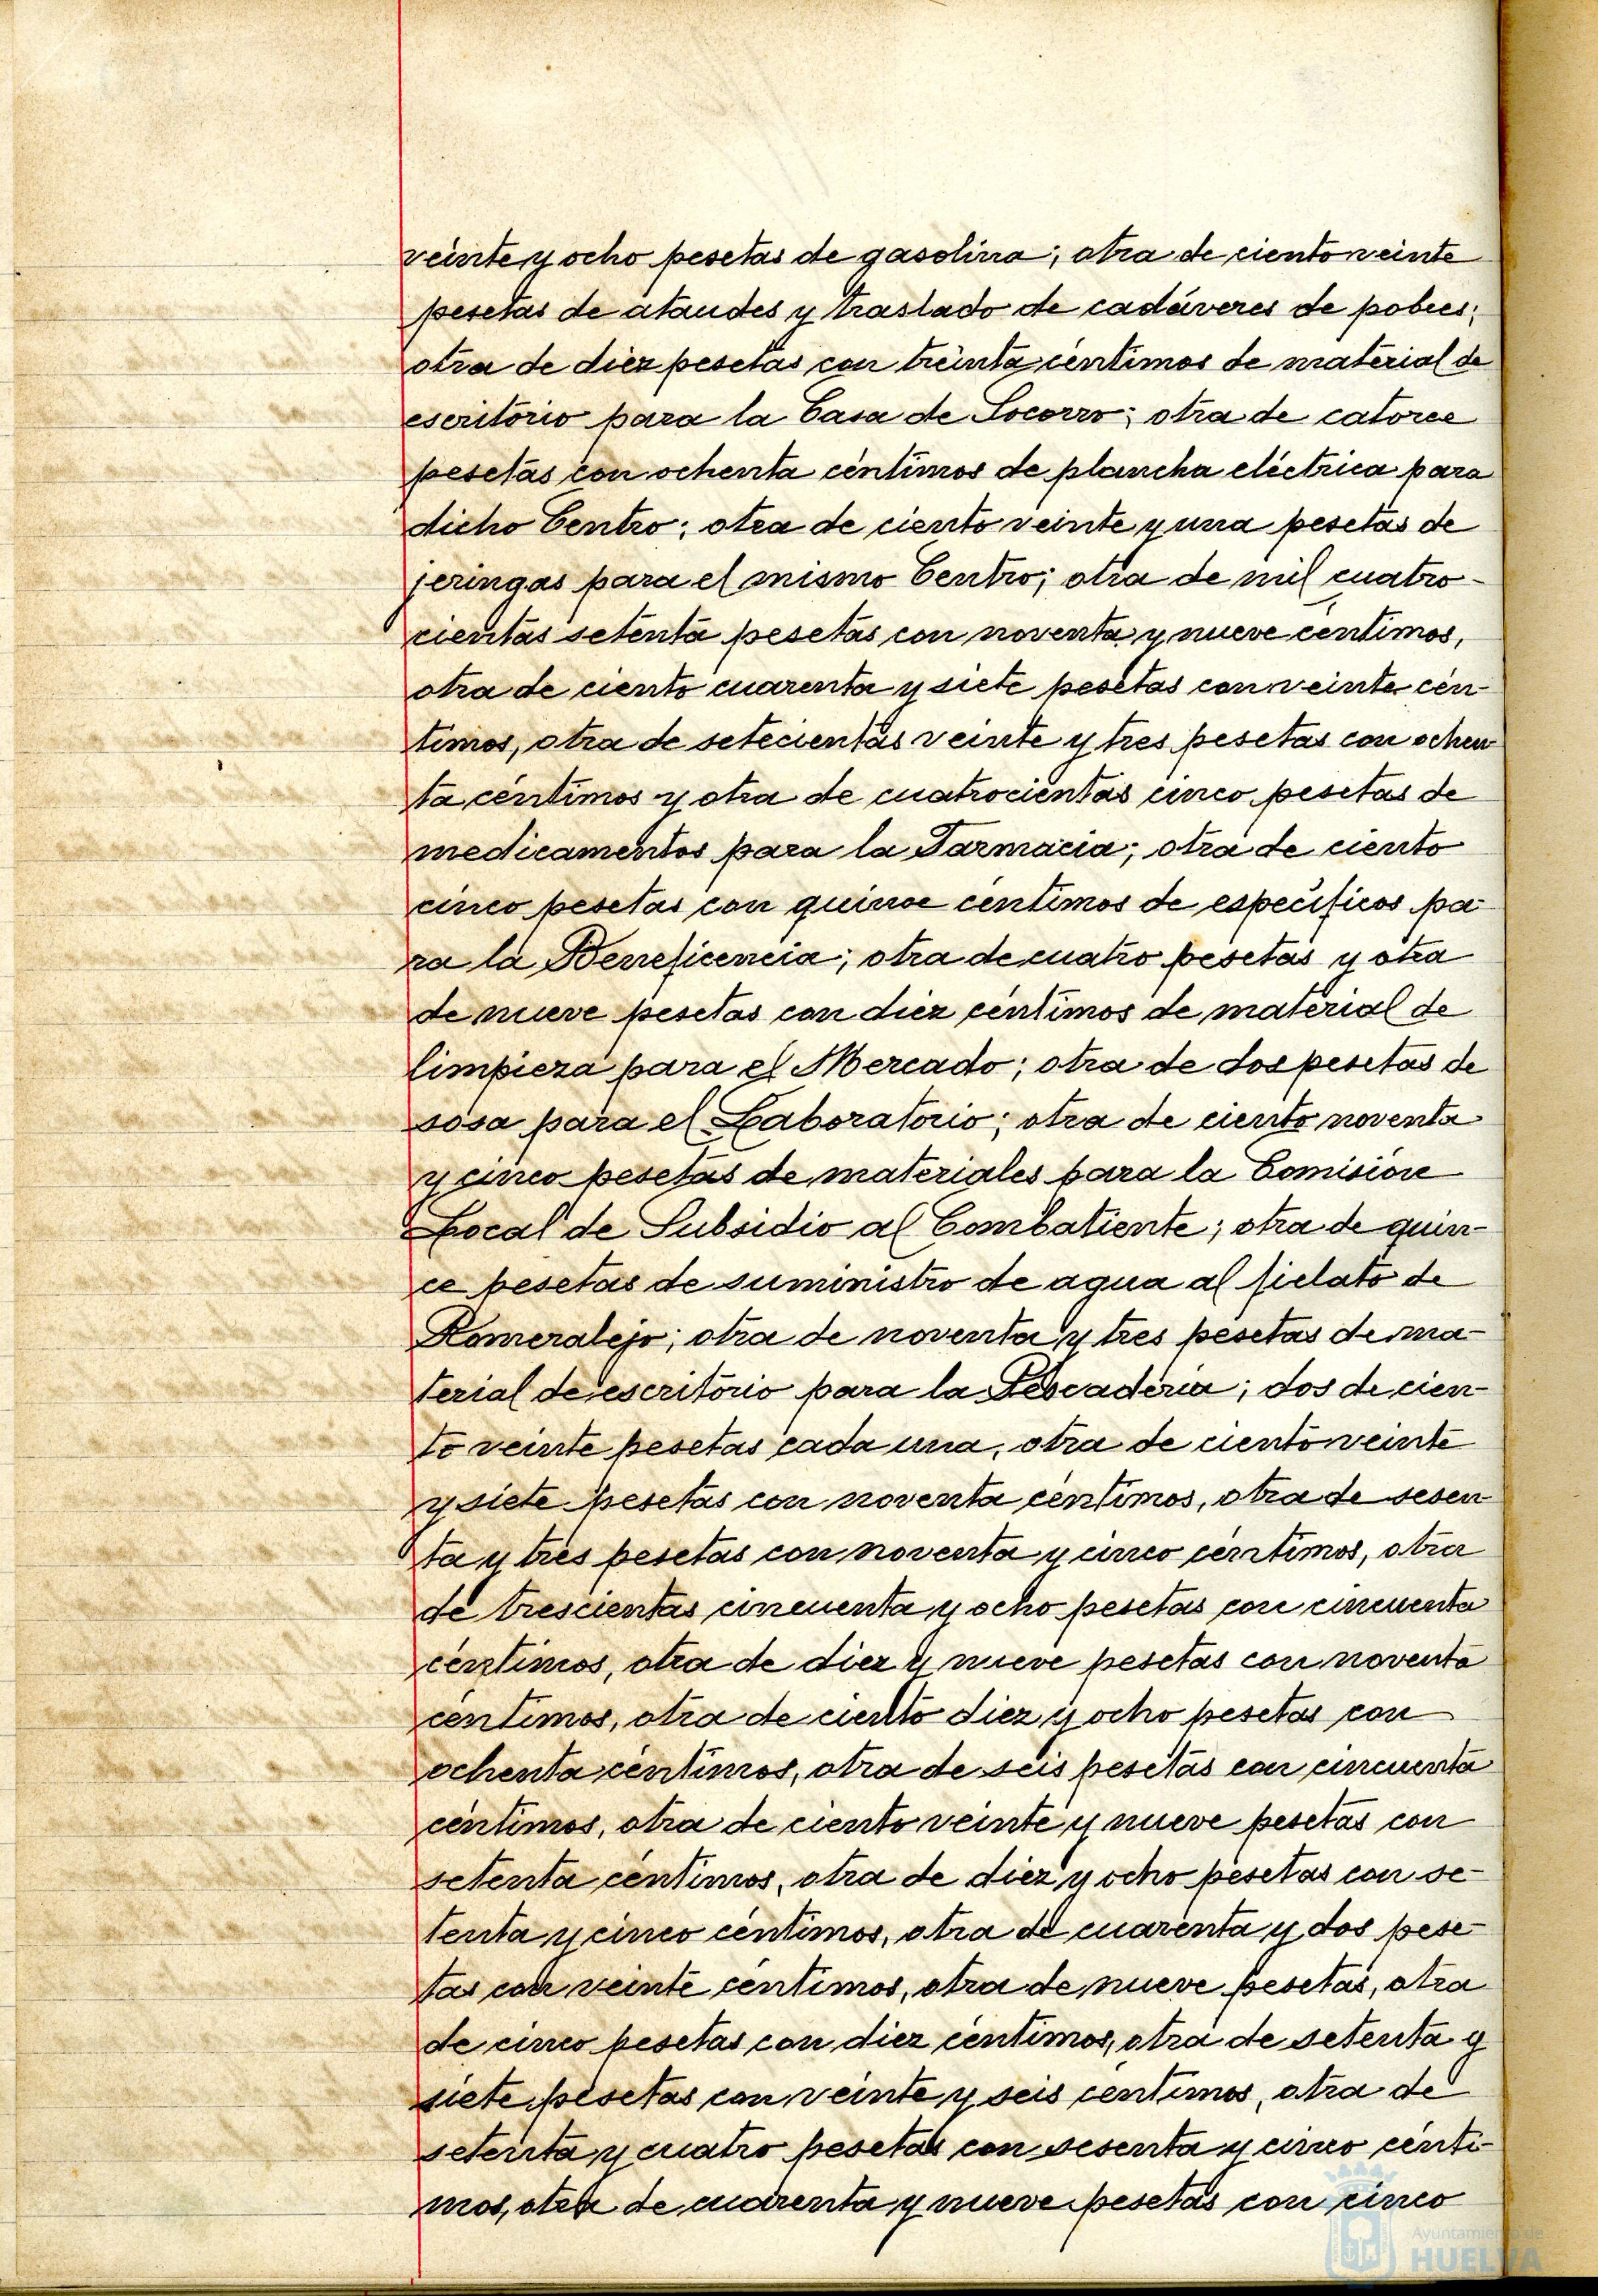 veinte y ocho pesetas de gasolina; otra de ciento veinte
pesetas de ataudes y traslado de cadáveres de pobres;
otra de diez pesetas con treinta céntimos de material de
escritorio para la Casa de Socorro; otra de catorce
pesetas con ochenta céntimos de plancha eléctrica para
dicho Centro; otra de ciento veinte y una pesetas de
jeringas para el mismo Centro; otra de mil cuatro-
cientas setenta pesetas con noventa y nueve céntimos,
otra de ciento cuarenta y siete pesetas con veinte cén-
timos, otra de setecientas veinte y tres pesetas con ochen
ta céntimos y otra de cuatrocientas cinco pesetas de
medicamentos para la Farmacia; otra de ciento
cinco pesetas con quince céntimos de específicos pa
ra la Beneficencia; otra de cuatro pesetas y otra
de nueve pesetas con diez céntimos de material de
limpieza para el Mercado; otra de dos pesetas de
sosa para el Laboratorio; otra de ciento noventa
y cinco pesetas de materiales para la Comisión
Local de Subsidio al Combatiente; otra de quin-
ce pesetas de suministro de agua al fielato de
Romeralejo; otra de noventa y tres pesetas de ma-
terial de escritorio para la Pescadería; dos de cien-
to veinte pesetas cada una, otra de ciento veinte
y siete pesetas con noventa céntimos, otra de sesen
ta y tres pesetas con noventa y cinco céntimos, otra
de trescientas cincuenta y ocho pesetas con cincuenta
céntimos, otra de diez y nueve pesetas con noventa
céntimos, otra de ciento diez y ocho pesetas con
ochenta céntimos, otra de seis pesetas con cincuenta
céntimos, otra de ciento veinte y nueve pesetas con
setenta céntimos, otra de diez y ocho pesetas con se-
tenta y cinco céntimos, otra de cuarenta y dos pese-
tas con veinte céntimos, otra de nueve pesetas, otra
de cinco pesetas con diez céntimos, otra de setenta y
siete pesetas con veinte y seis céntimos, otra de
setenta y cuatro pesetas con sesenta y cinco cénti-
mos, otra de cuarenta y nueve pesetas con cinco
Ayuntamiento de
HUELVA